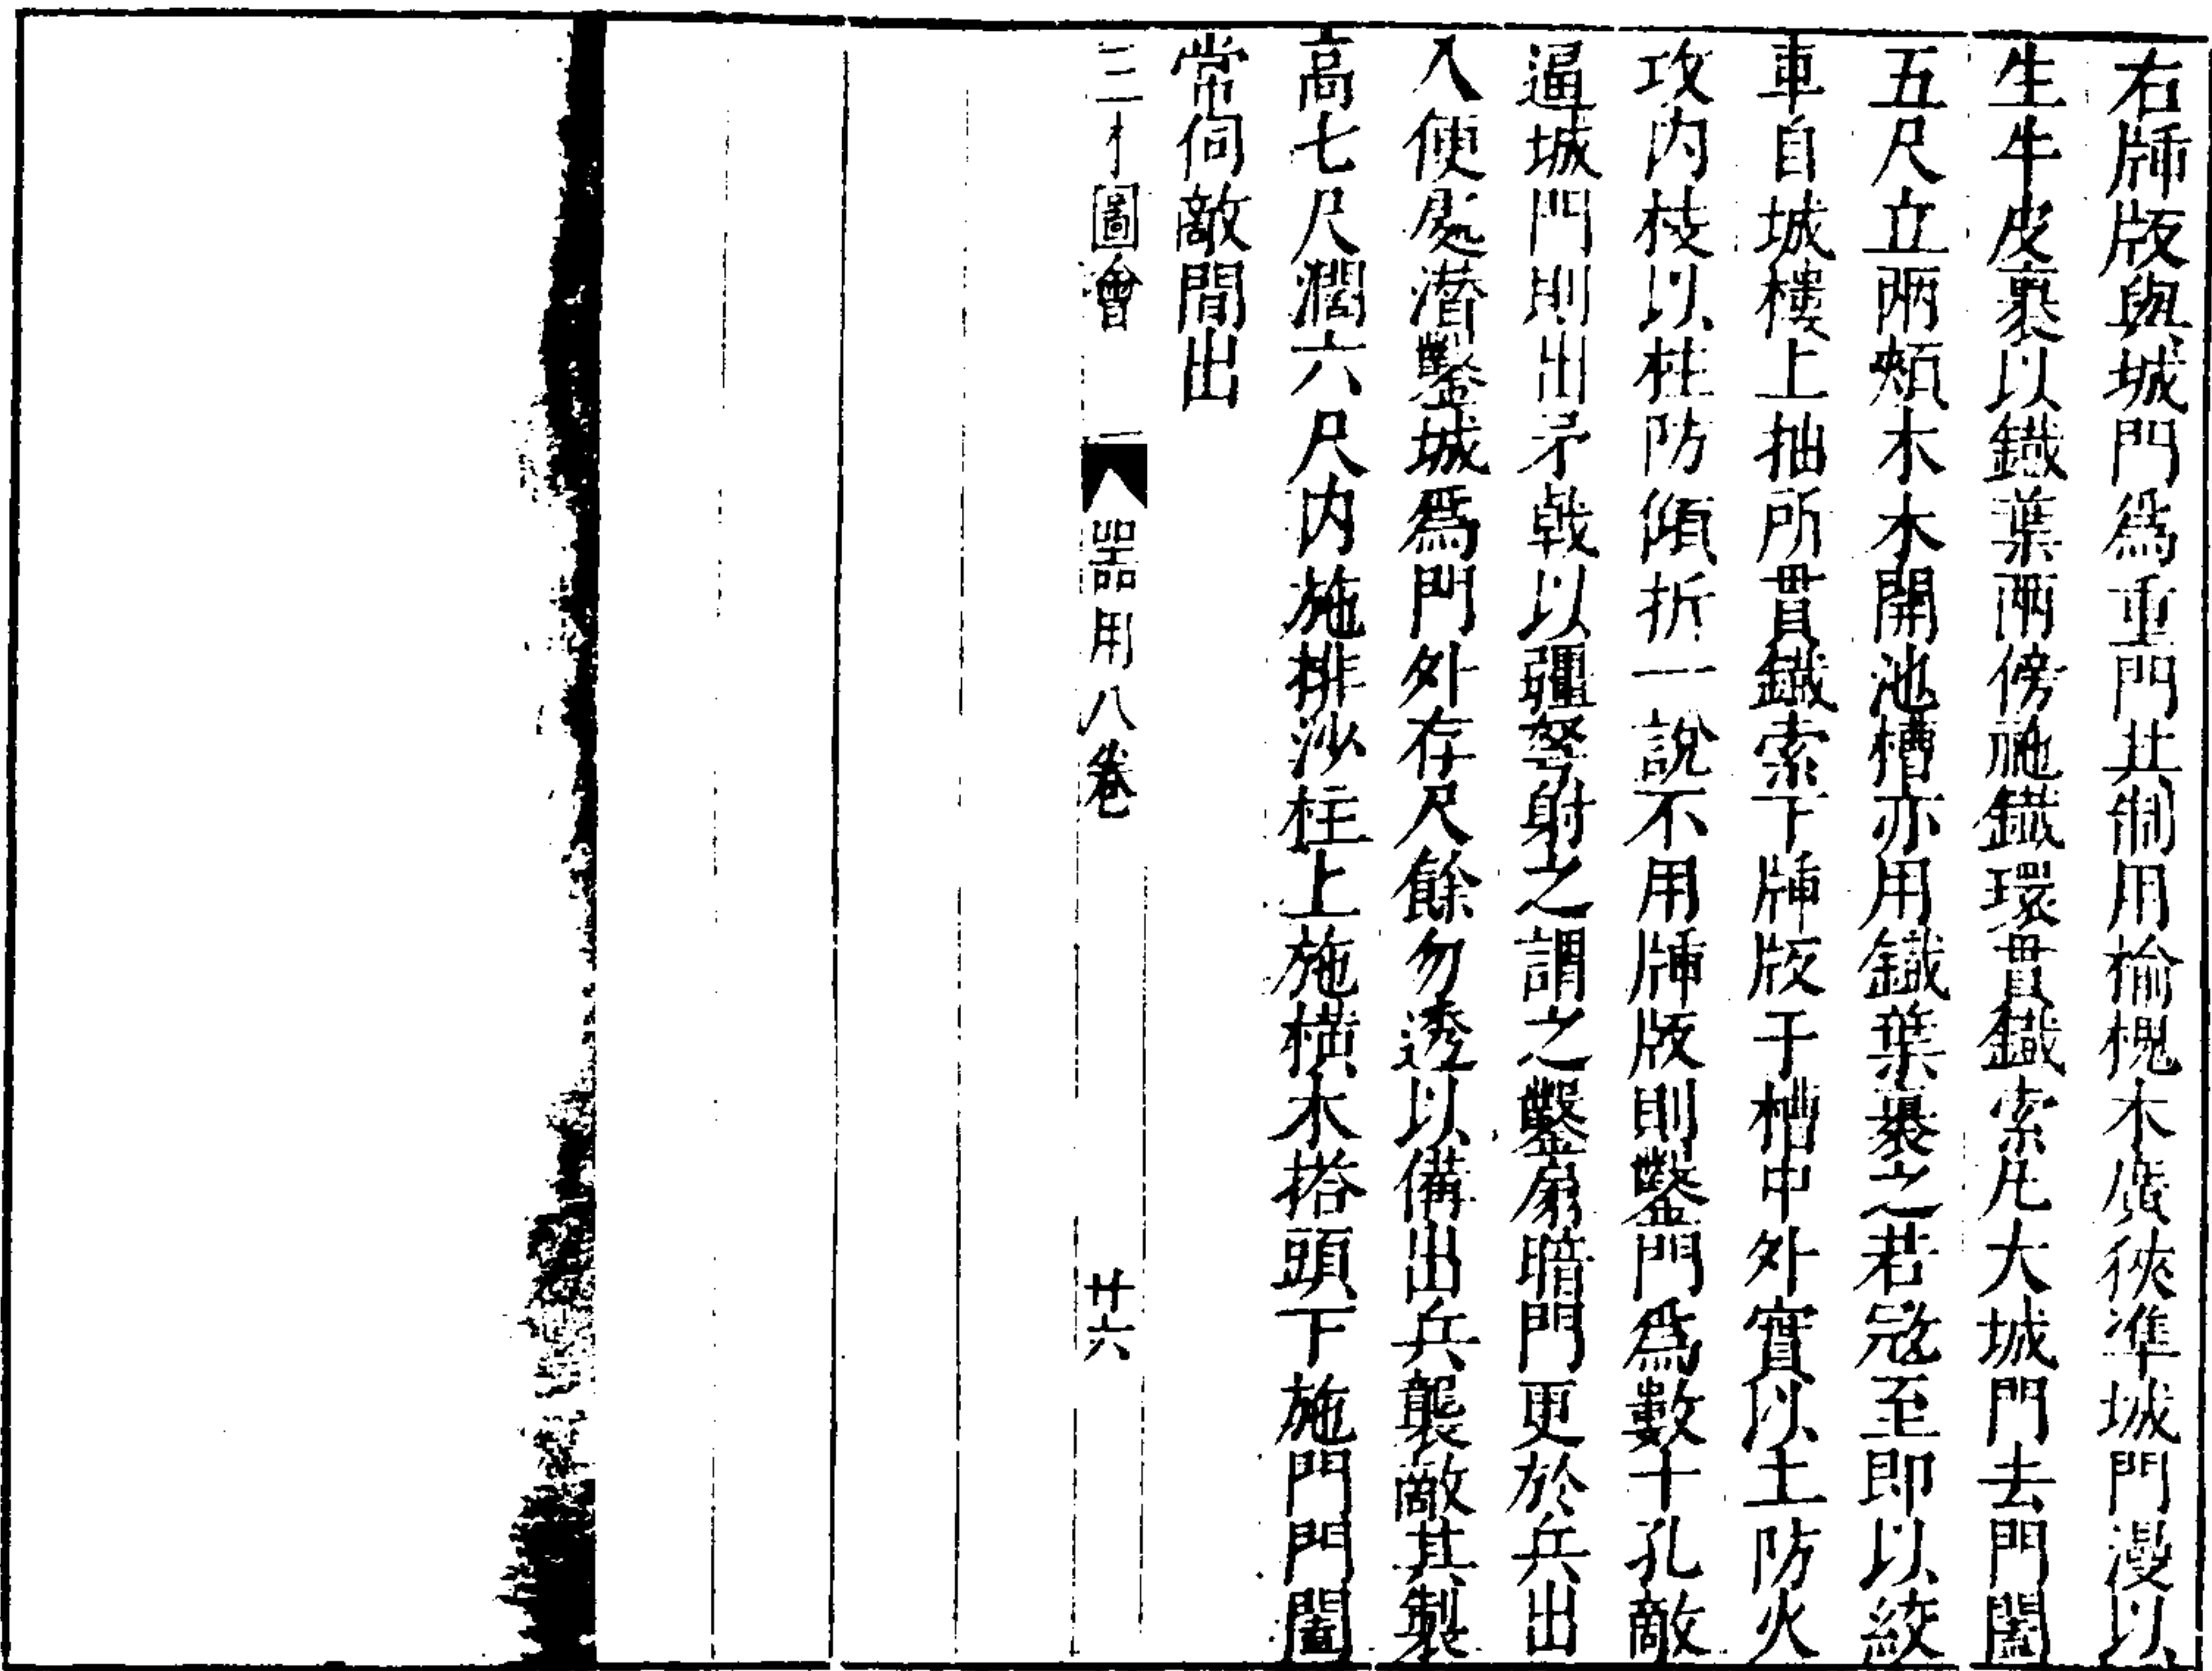 右牐版與城門爲重門其制用榆槐木廣狹準城門漫以
生牛皮裹以鐵葉兩傍施鐵環貫鐵索凡大城門去門闔
五尺立兩頰木木開池槽亦用鐵葉裹之若寇至即以絞
車自城樓上抽所貫鐵索下牐版于槽中外實以土防火
攻内枝以柱防傾折一說不用牐版則鑿門爲數十孔敵
逼城門則出矛戟以疆弩射之謂之鑿扇暗門更於兵出
入便處潜鑿城爲門外存尺餘勿透以備出兵襲敵其製
高七尺濶六尺内施排沙柱上施横木搭頭下施門門闔
常伺敵間出
三才圖會 器用八卷 廿六